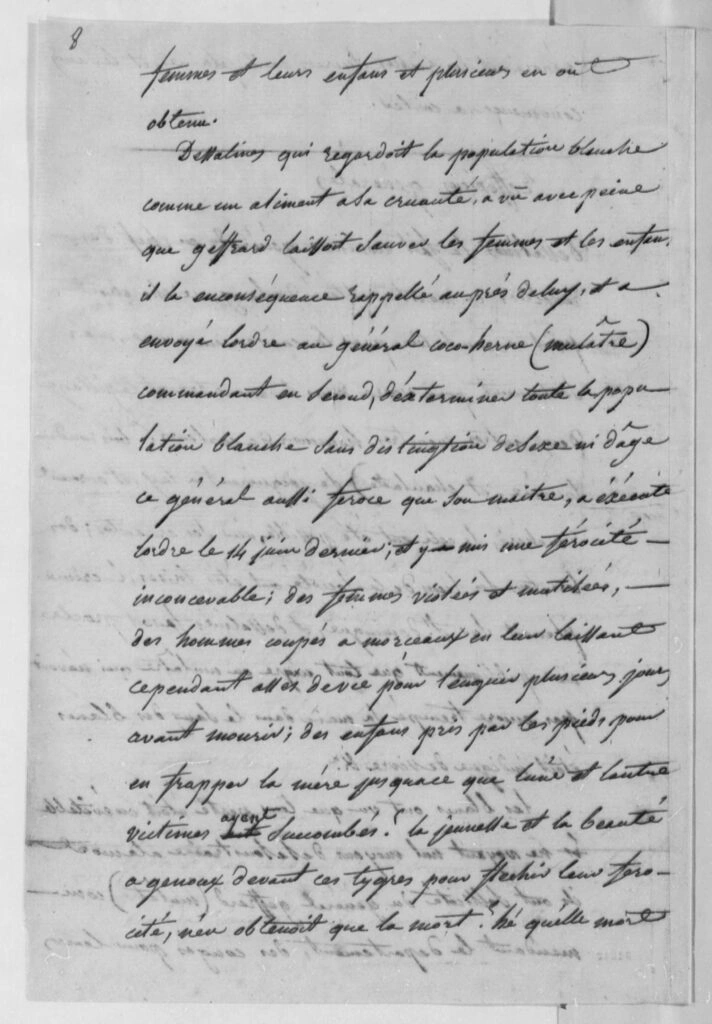 8
femmes et leurs enfans et plusieurs en ont
obtenu.
Dessalines qui regardoit la population blanche
comme un aliment a sa cruauté, a vû avec peine
que géffrard laissoit sauver les femmes et les enfans.
il la enconséquence rappellé auprés deluy, et a
envoyé lordre au général coco-herne (mulâtre)
commandant en second, déxterminer toute la popu-
lation blanche sans distingtion desexe ni dâge
ce général aussi feroce que son maitre, a éxécuté
lordre le 14 juin dernier; et y a mis une férocité -
inconcevable; des femmes violées et mutilées, -
des hommes coupés a morceaux en leur laissant
cependant assés devie pour languir plusieurs jours
avant mourir; des enfans pris par les pieds pour
en frapper la mére jusquace que lune et lautre
victimes ayent succombés! la jeunesse et la beauté
a genoux devant ces tygres pour flechir leur fero-
cité, n'en obtenoit que la mort! hé quelle mort